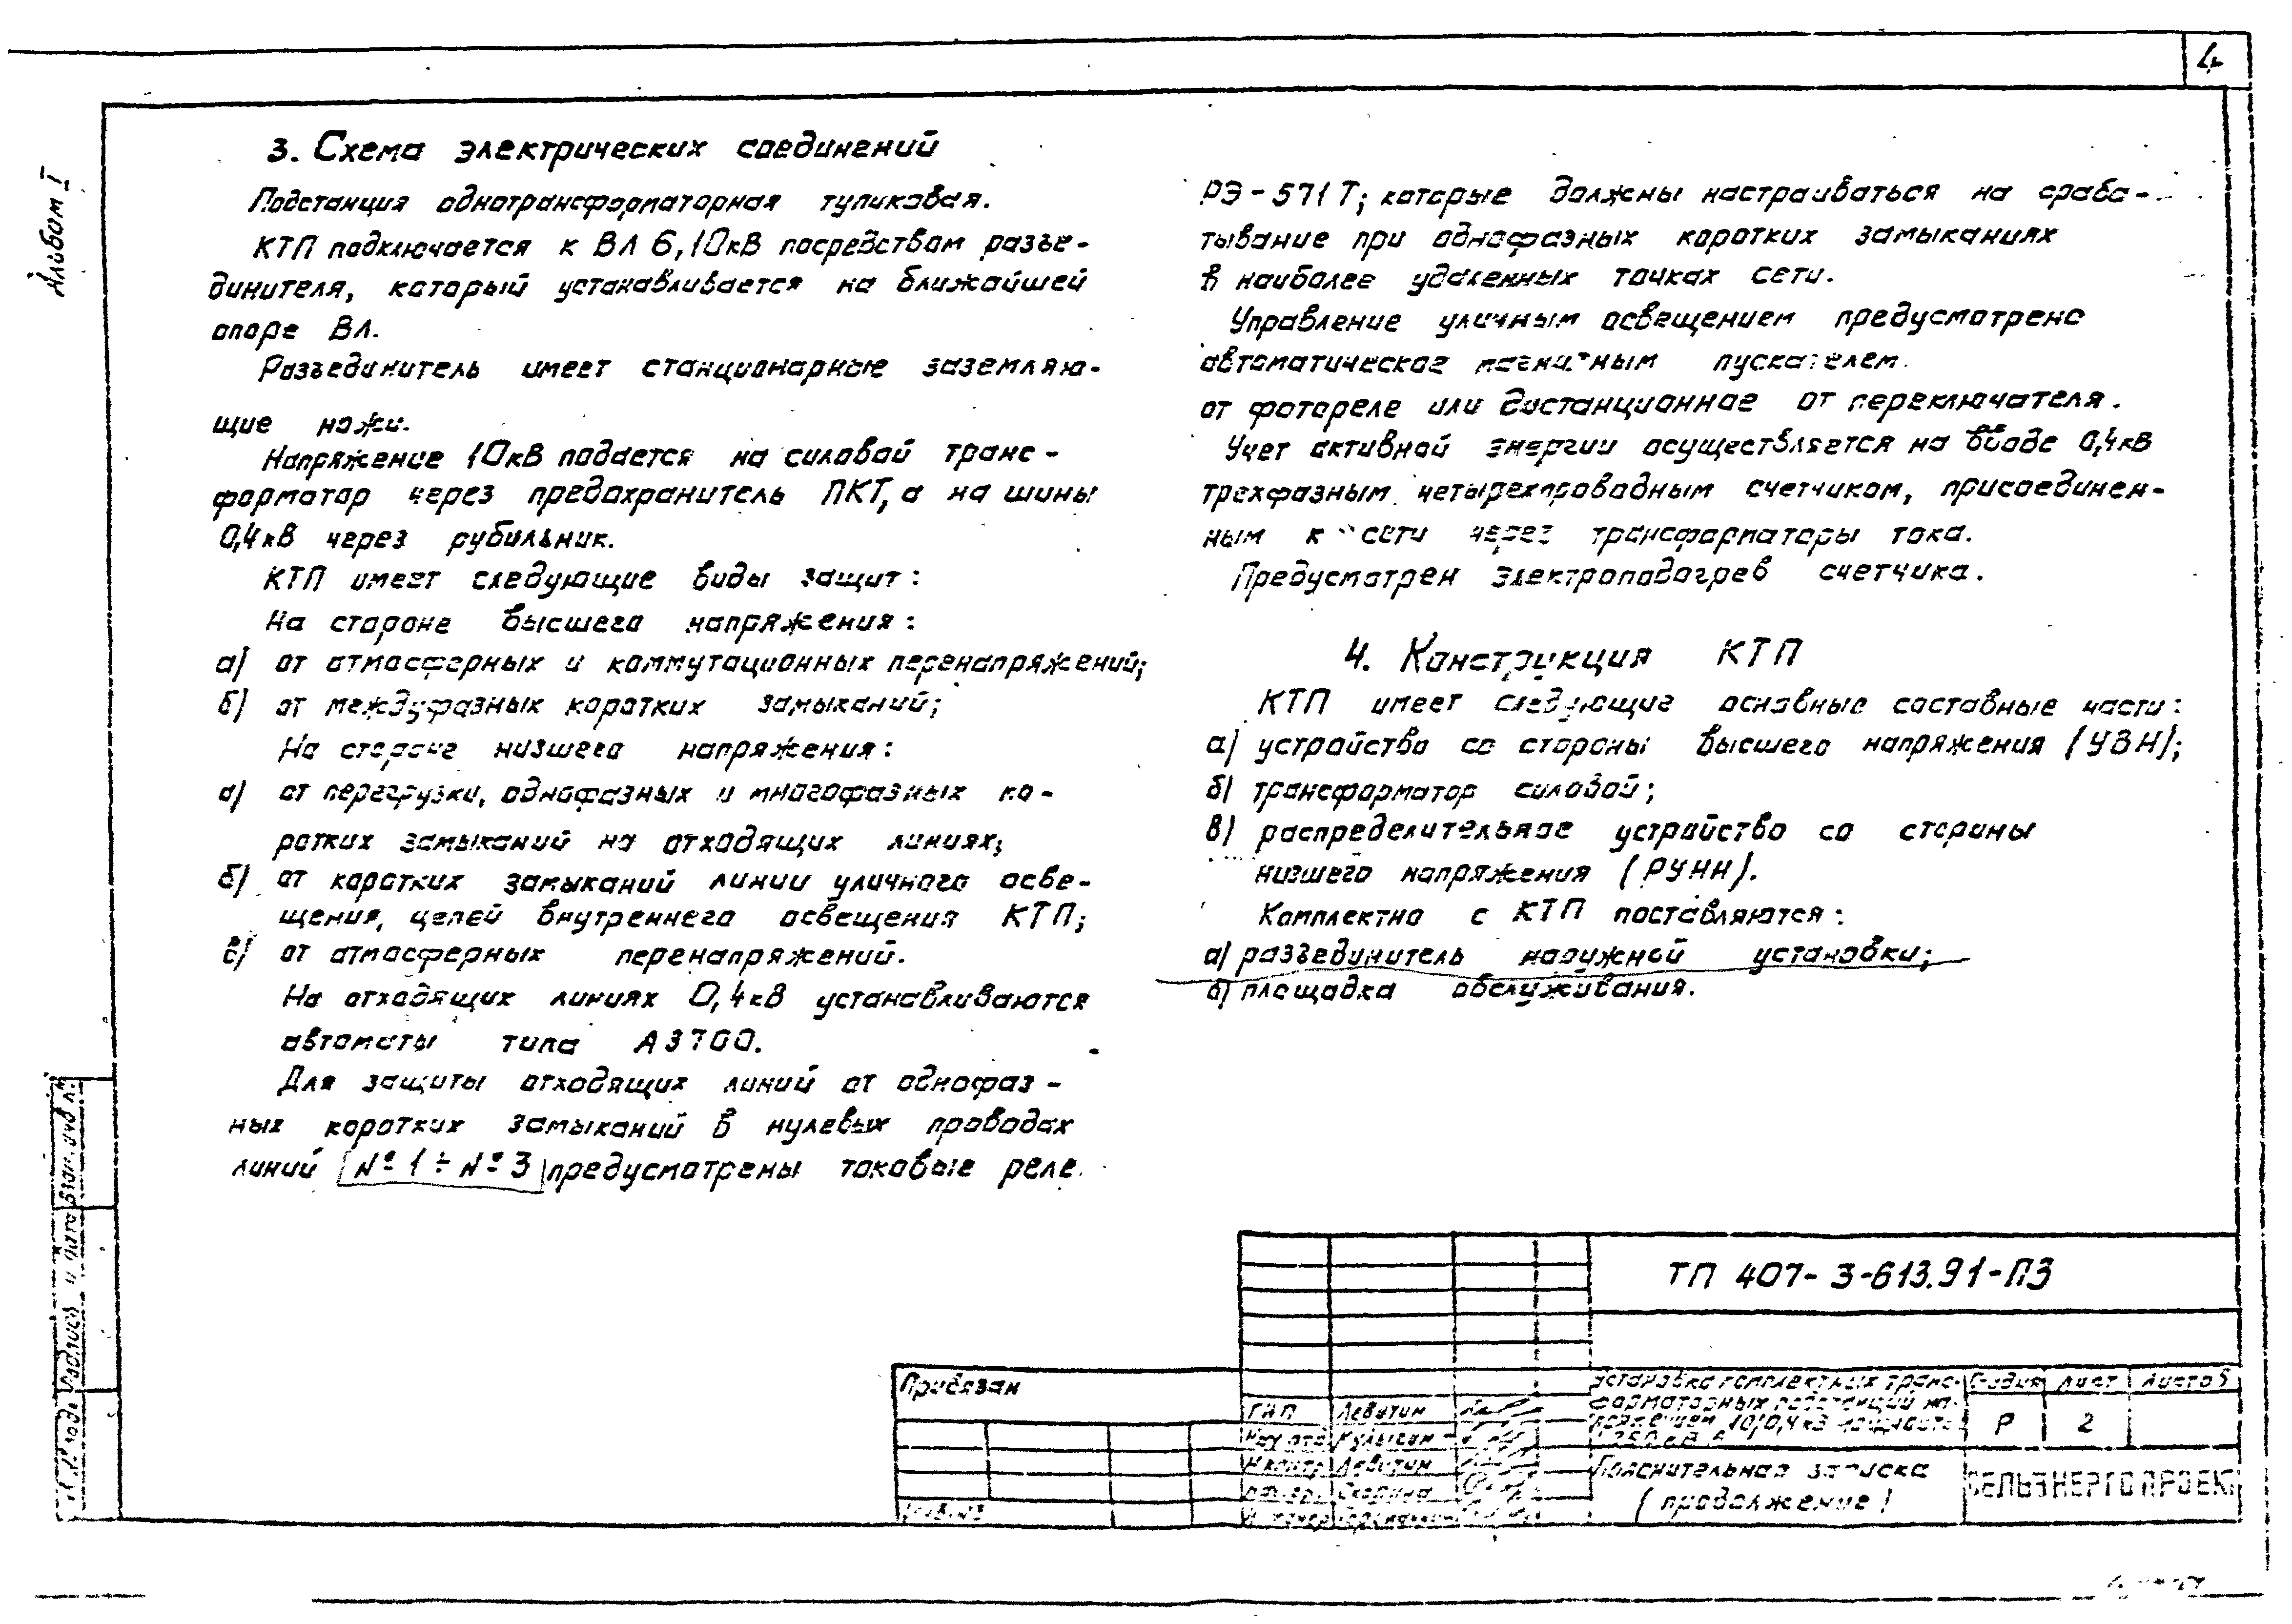 4
Альбом I
3. Схема электрических соединений
Подстанция однотрансформаторная тупиковая.
КТП подключается к ВЛ 6,10кВ посредством разъе-
динителя, который устанавливается на ближайшей
опоре ВЛ.
Разъединитель имеет станционарные заземляю-
щие ножи.
Напряжение 10кВ подается на силовой транс-
форматор через предохранитель ПКТ, а на шины
0,4кВ через рубильник.
КТП имеет следующие виды защит:
На стороне высшего напряжения:
а) от атмосферных и коммутационных перенапряжений;
б) от междуфазных коротких замыканий;
На стороне низшего напряжения:
а) от перегрузки, однофазных и многофазных ко-
ротких замыканий на отходящих линиях;
б) от коротких замыканий линии уличного осве-
щения, цепей внутреннего освещения КТП;
в) от атмосферных перенапряжений.
На отходящих линиях 0,4кВ устанавливаются
автоматы типа А3700.
Для защиты отходящих линий от однофаз-
ных коротких замыканий в нулевых проводах
линий №1÷№3 предусмотрены токовые реле
РЭ-571Т; которые должны настраиваться на сраба-
тывание при однофазных коротких замыканиях
в наиболее удаленных точках сети.
Управление уличным освещением предусмотрено
автоматическое магнитным пускателем
от фотореле или дистанционное от переключателя.
Учет активной энергии осуществляется на вводе 0,4кВ
трехфазным четырехпроводным счетчиком, присоединен-
ным к сети через трансформаторы тока.
Предусмотрен электроподогрев счетчика.
4. Конструкция КТП
КТП имеет следующие основные составные части:
а) устройство со стороны высшего напряжения (УВН);
б) трансформатор силовой;
в) распределительное устройство со стороны
низшего напряжения (РУНН).
Комплектно с КТП поставляются:
а) разъединитель наружной установки;
б) площадка обслуживания.
Взам. инв.№
Подпись и дата
Инв.№ подл.
ТП 407-3-613.91-ПЗ
Привязан
Инв.№
ГИП Левитин
Нач.отд. Кулыгин
Н.контр. Левитин
Скорина
установка комплектных транс-
форматорных подстанций на-
пряжением 10/0,4кВ мощность
Стадия Лист Листов
Р 2
Пояснительная записка
(продолжение)
СЕЛЬЭНЕРГОПРОЕКТ